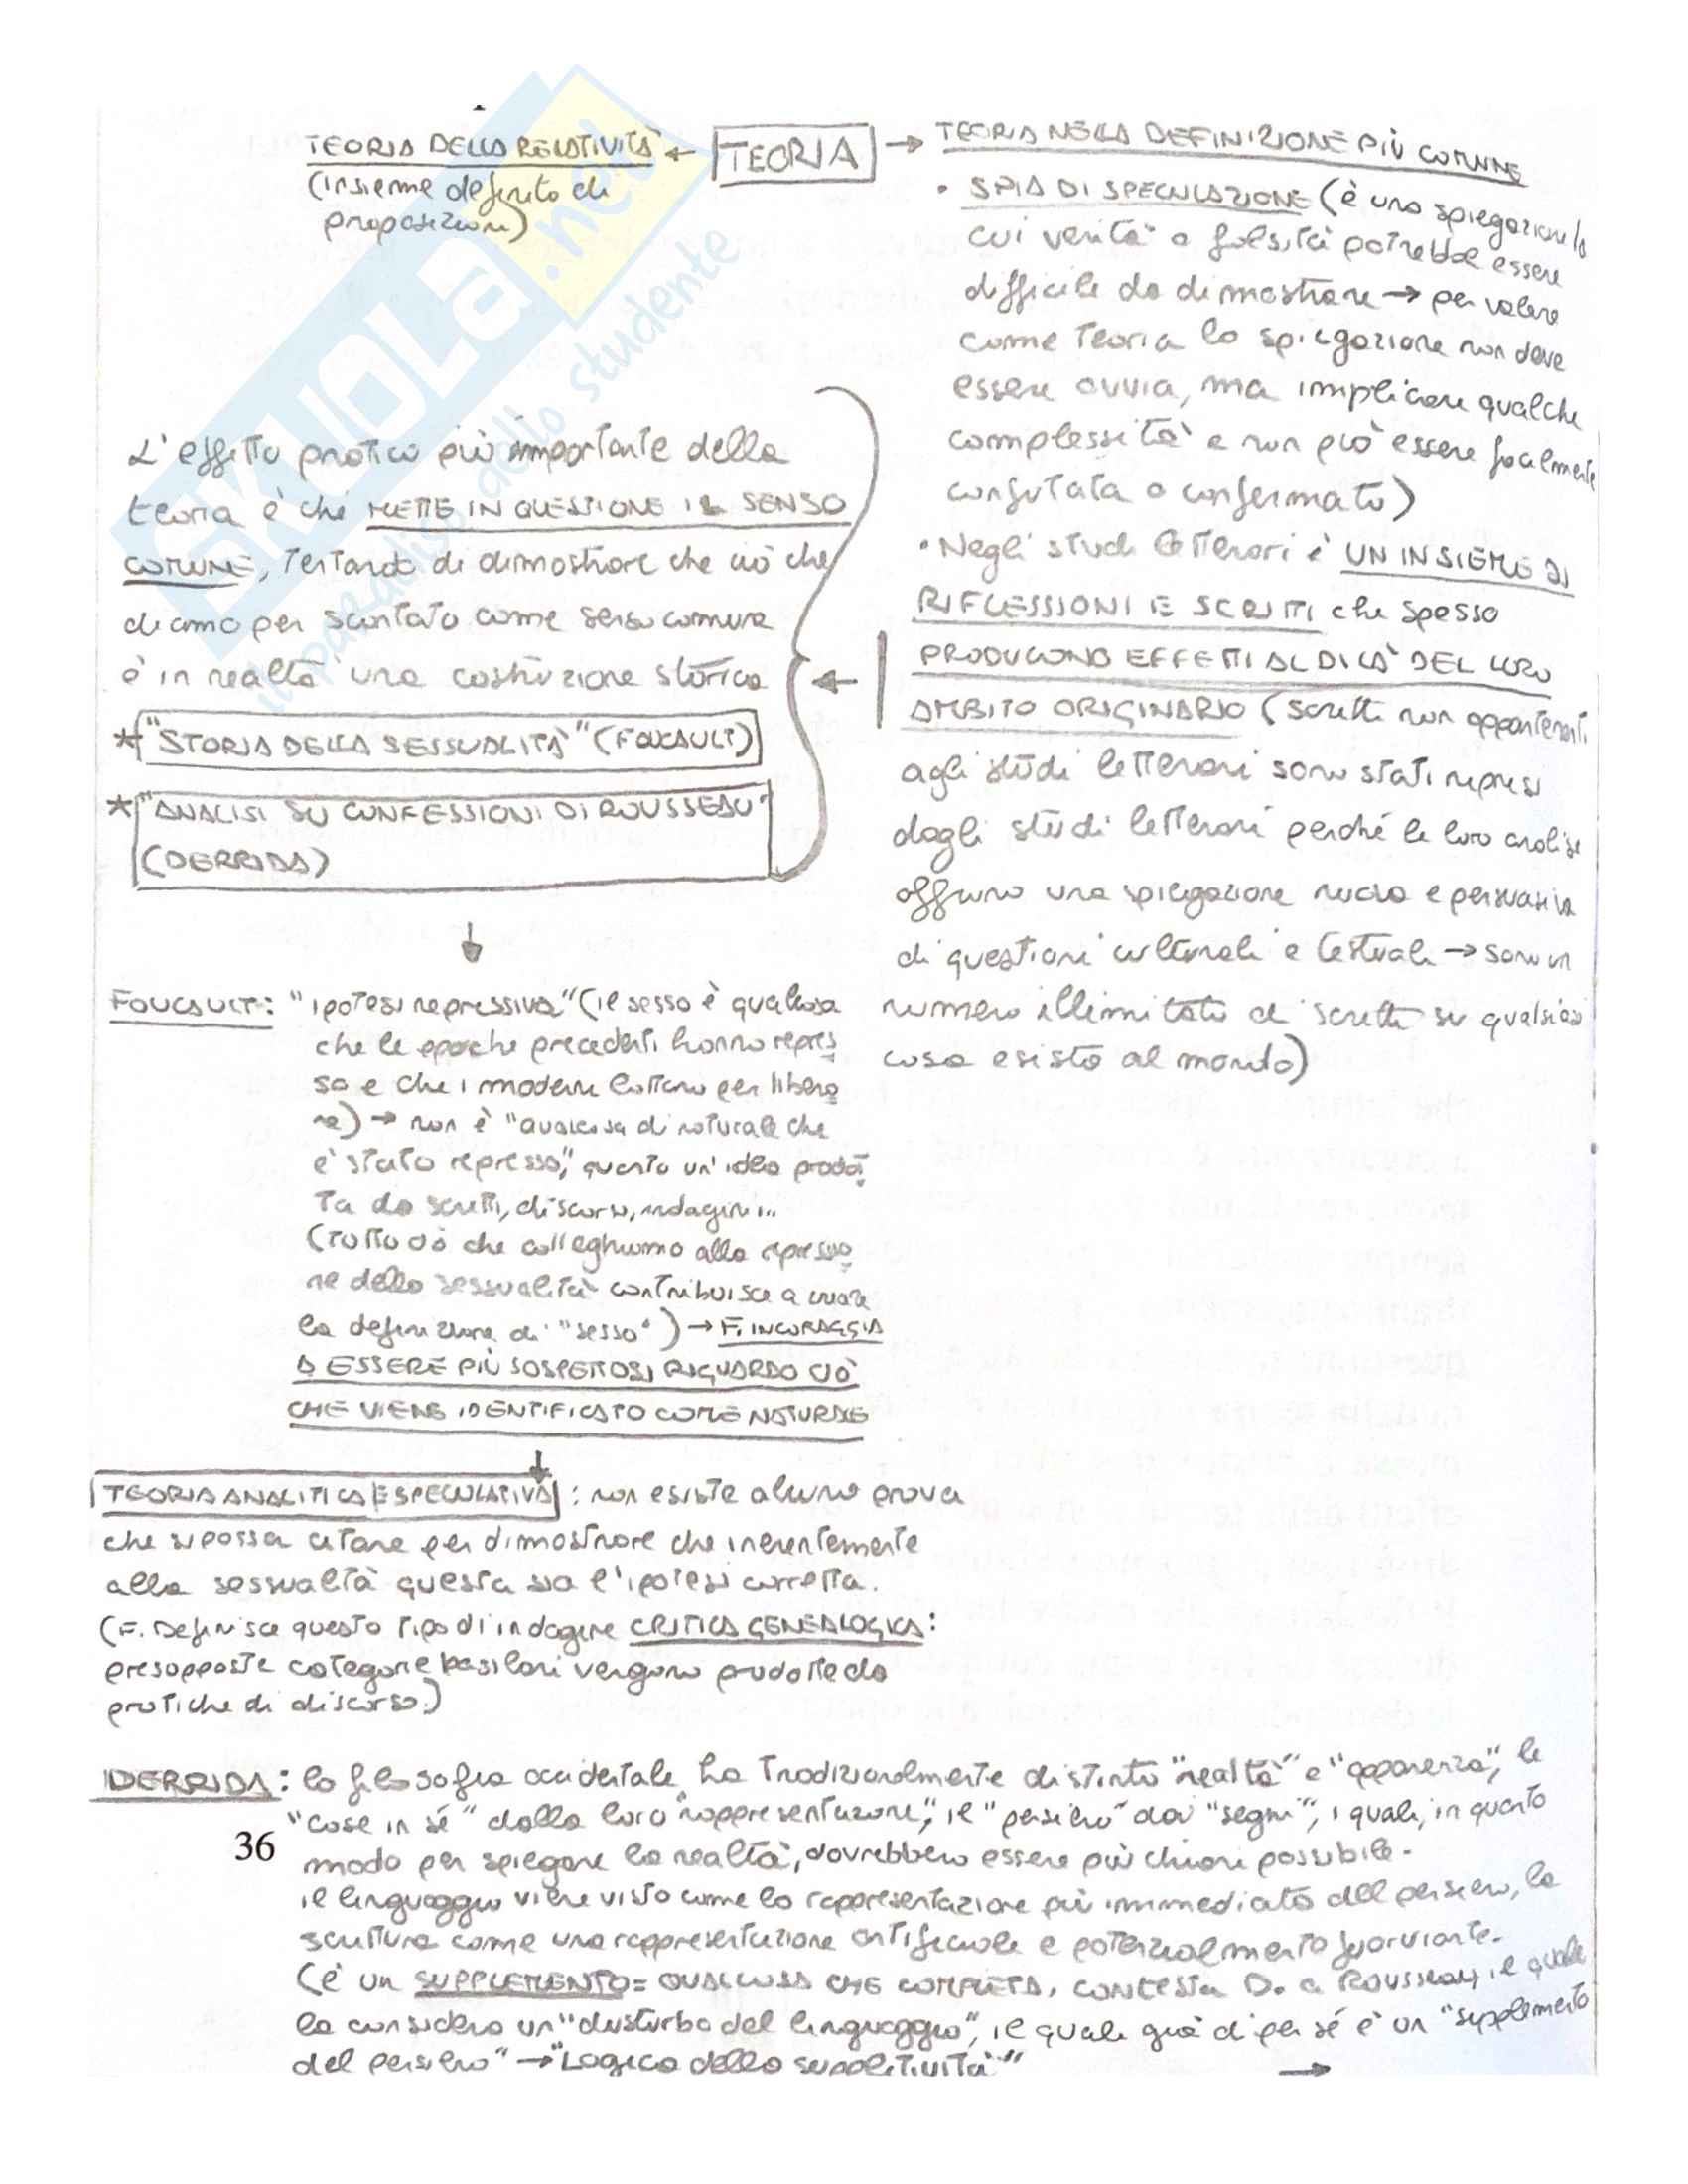 TEORIA DELLA RELATIVITÀ ← TEORIA → TEORIA NELLA DEFINIZIONE PIÙ COMUNE
(insieme definito di
proposizioni)
• SPIA DI SPECULAZIONE (è una spiegazione la
cui verità o falsità potrebbe essere
difficile da dimostrare → per valere
come teoria la spiegazione non deve
essere ovvia, ma implicare qualche
complessità e non può essere facilmente
confutata o confermata)
• Negli studi letterari è UN INSIEME DI
RIFLESSIONI E SCRITTI che spesso
PRODUCONO EFFETTI AL DI LÀ DEL LORO
AMBITO ORIGINARIO (scritti non appartenenti
agli studi letterari sono stati ripresi
dagli studi letterari perché le loro analisi
offrono una spiegazione nuova e persuasiva
di questioni culturali e testuali → sono un
numero illimitato di scritti su qualsiasi
cosa esista al mondo)
L'effetto pratico più importante della
teoria è che METTE IN QUESTIONE IL SENSO
COMUNE, tentando di dimostrare che ciò che
diamo per scontato come senso comune
è in realtà una costruzione storica ←
* "STORIA DELLA SESSUALITÀ" (FOUCAULT)
* "ANALISI SU CONFESSIONI DI ROUSSEAU"
(DERRIDA)
↓
FOUCAULT: "ipotesi repressiva" (il sesso è qualcosa
che le epoche precedenti hanno repres
so e che i moderni lottano per libera
re) → non è "qualcosa di naturale che
è stato represso", quanto un'idea prodot
ta da scritti, discorsi, indagini...
(tutto ciò che colleghiamo alla repressio
ne della sessualità contribuisce a creare
la definizione di "sesso") → F. INCORAGGIA
A ESSERE PIÙ SOSPETTOSI RIGUARDO CIÒ
CHE VIENE IDENTIFICATO COME NATURALE
↓
TEORIA ANALITICA E SPECULATIVA: non esiste alcuna prova
che si possa citare per dimostrare che inerentemente
alla sessualtà questa sia l'ipotesi corretta.
(F. Definisce questo tipo di indagine CRITICA GENEALOGICA:
presopposte categorie basilari vengono prodotte da
pratiche di discorso.)
DERRIDA: la filosofia occidentale ha tradizionalmente distinto "realtà" e "apparenza", le
"cose in sé" dalla loro "rappresentazione", il "pensiero" dai "segni", i quali, in quanto
36
modo per spiegare la realtà, dovrebbero essere più chiari possibile.
il linguaggio viene visto come la rappresentazione più immediata del pensiero, la
scrittura come una rappresentazione artificiale e potenzialmente fuorviante.
(è un SUPPLEMENTO = QUALCOSA CHE COMPLETA, contesta D. a Rousseau, il quale
la considera un "disturbo del linguaggio", il quale già di per sé è un "supplemento
del pensiero" → "Logica della suppletività"
→
SKUOLA.net
il paradiso dello studente